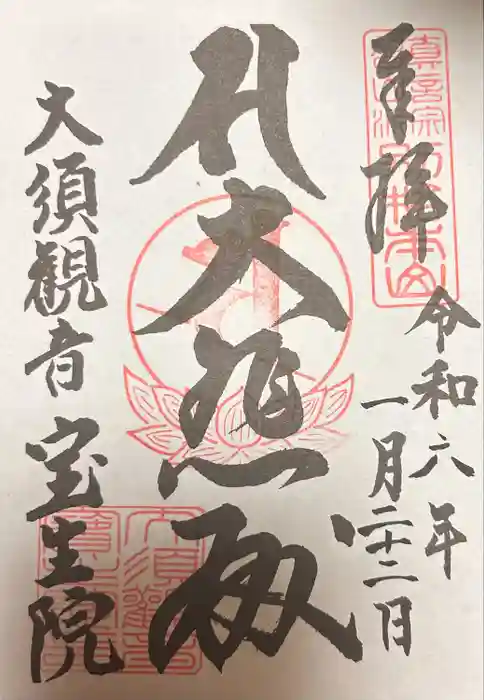 奉拝
令和六年
一月二十二日
大悲殿
大須観音
宝生院